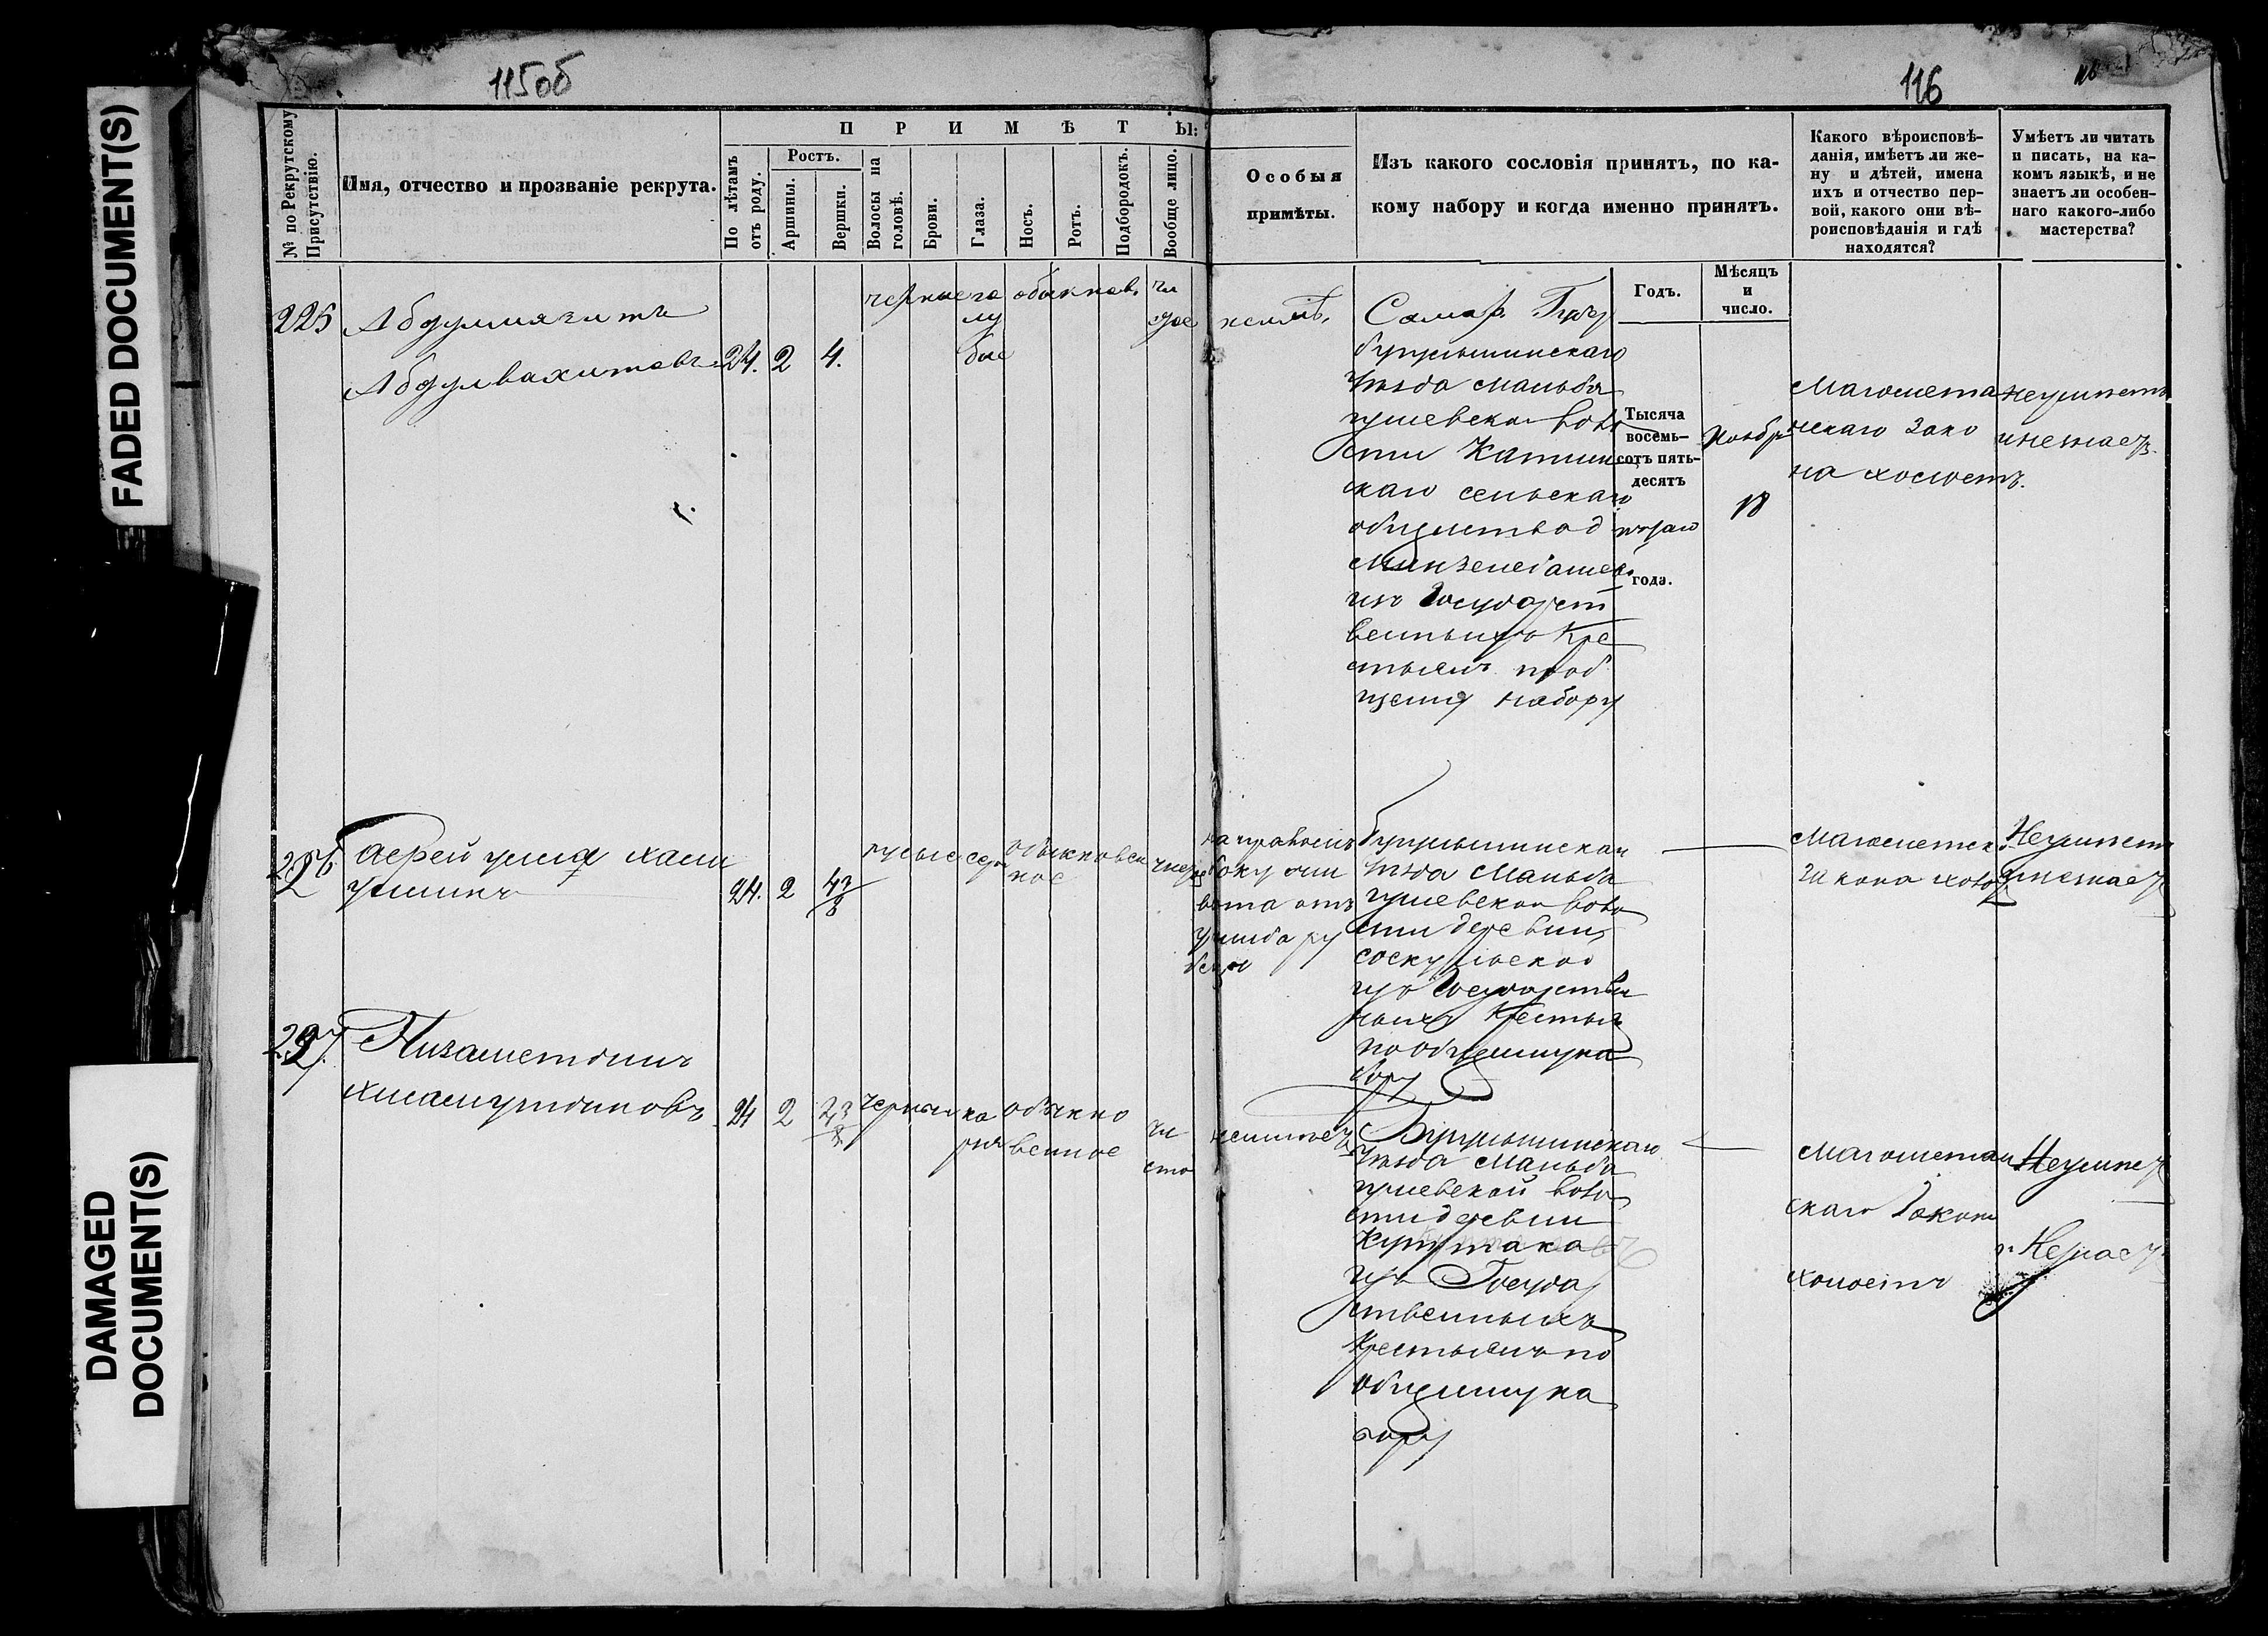 FADED DOCUMENT(S)
DAMAGED
DOCUMENT(S)
115об
116
№ по Рекрутскому
Присутствію.
Имя, отчество и прозваніе рекрута.
ПРИМѢТЫ:
По лѣтамъ
отъ роду.
Ростъ.
Аршины.
Вершки.
Волосы на
головѣ.
Брови.
Глаза.
Носъ.
Ротъ.
Подбородокъ.
Вообще лицо.
Особыя
примѣты.
Изъ какого сословія принятъ, по ка-
кому набору и когда именно принятъ.
Какого вѣроисповѣ-
данія, имѣетъ ли же-
ну и дѣтей, имена
ихъ и отчество пер-
вой, какого они вѣ-
роисповѣданія и гдѣ
находятся?
Умѣетъ ли читать
и писать, на ка-
комъ языкѣ, и не
знаетъ ли особен-
наго какого-либо
мастерства?
Годъ.
Мѣсяцъ
и
число.
225
Абдулвахитовъ
24. 2 4.
черные го
лу
бые
обыкнов.
чи
Самар. Губер
бугульминскаго
уѣзда Мальба
гушевскои воло
сти
скаго сельскаго
общества д
изъ Государст
венныхъ Кре
стьянъ по об
щему набору
Тысяча
восемь-
сотъ пять-
десятъ
втораго
года.
Ноябр
18
Магомета
нскаго Зако
на холостъ.
неумѣетъ
и незнаетъ
226
24. 2 4 3/8
русые
серы
обыкновен
ное
на правомъ
боку
отъ
бугульминскаго
уѣзда Мальба
гушевскои воло
сти деревни
изъ Государствен
ныхъ Крестьянъ
по общему на
бору
Магометск.
Закона холос
Неумѣетъ
и незнаетъ
227
Низаметдинъ
24 2 2 3/8
черныя
ка
рия
обыкно
венное
чи
сто
неимѣетъ
Бугульминскаго
уѣзда Мальба
гушевской воло
сти деревни
изъ Госуда
ственныхъ
Крестьянъ по
общему на
бору
Магометан
скаго Закона
холостъ
Неумѣетъ
и Незнаетъ